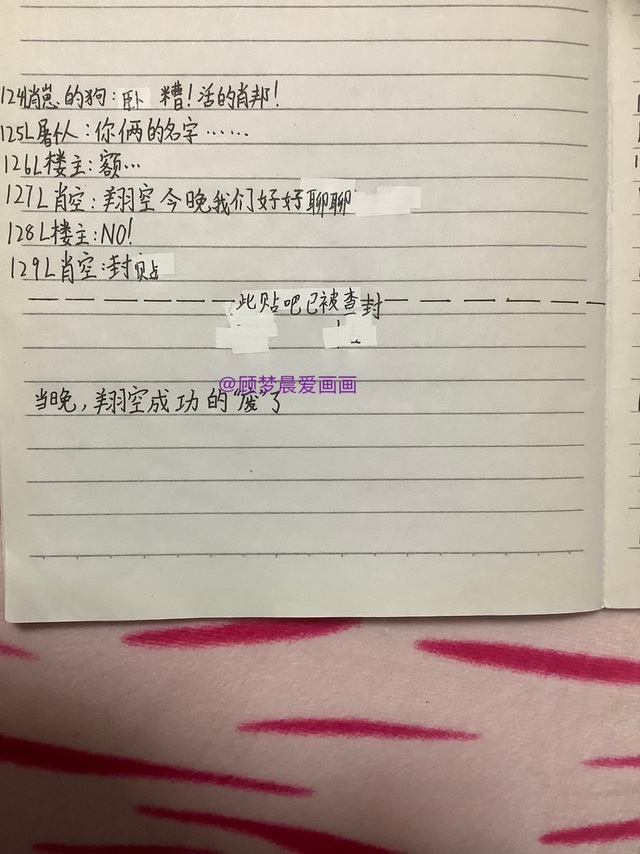 124L肖崽的狗：卧 糟！活的肖邦！
125L屠仆：你俩的名字……
126L楼主：额…
127L肖空：翔空今晚我们好好聊聊
128L楼主：NO!
129L肖空：封贴
此贴吧已被查封
@顾梦晨爱画画
当晚，翔空成功的“废”了